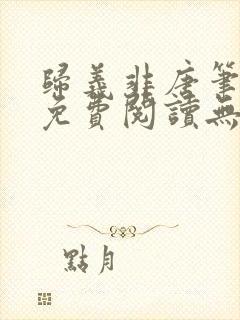 歸義非唐筆
免費閱讀無
點月